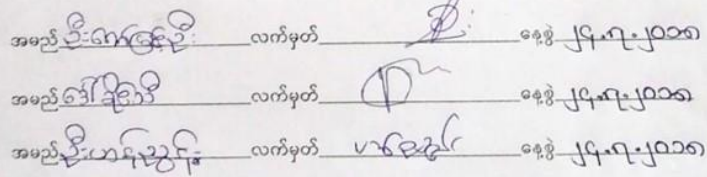 အမည် ဦးကျော်မြင့်ဦး လက်မှတ် နေ့စွဲ ၂၄.၇.၂၀၁၈
အမည် ဒေါ်ခိုင်သီ လက်မှတ် နေ့စွဲ ၂၄.၇.၂၀၁၈
အမည် ဦးဟန်ညွန့် လက်မှတ် နေ့စွဲ ၂၄.၇.၂၀၁၈